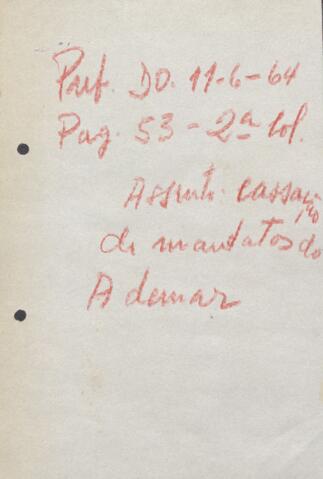 Pref. DO. 11-6-64
Pag. 53 - 2ª Col.
Assunto. cassação
de mandatos do
Ademar